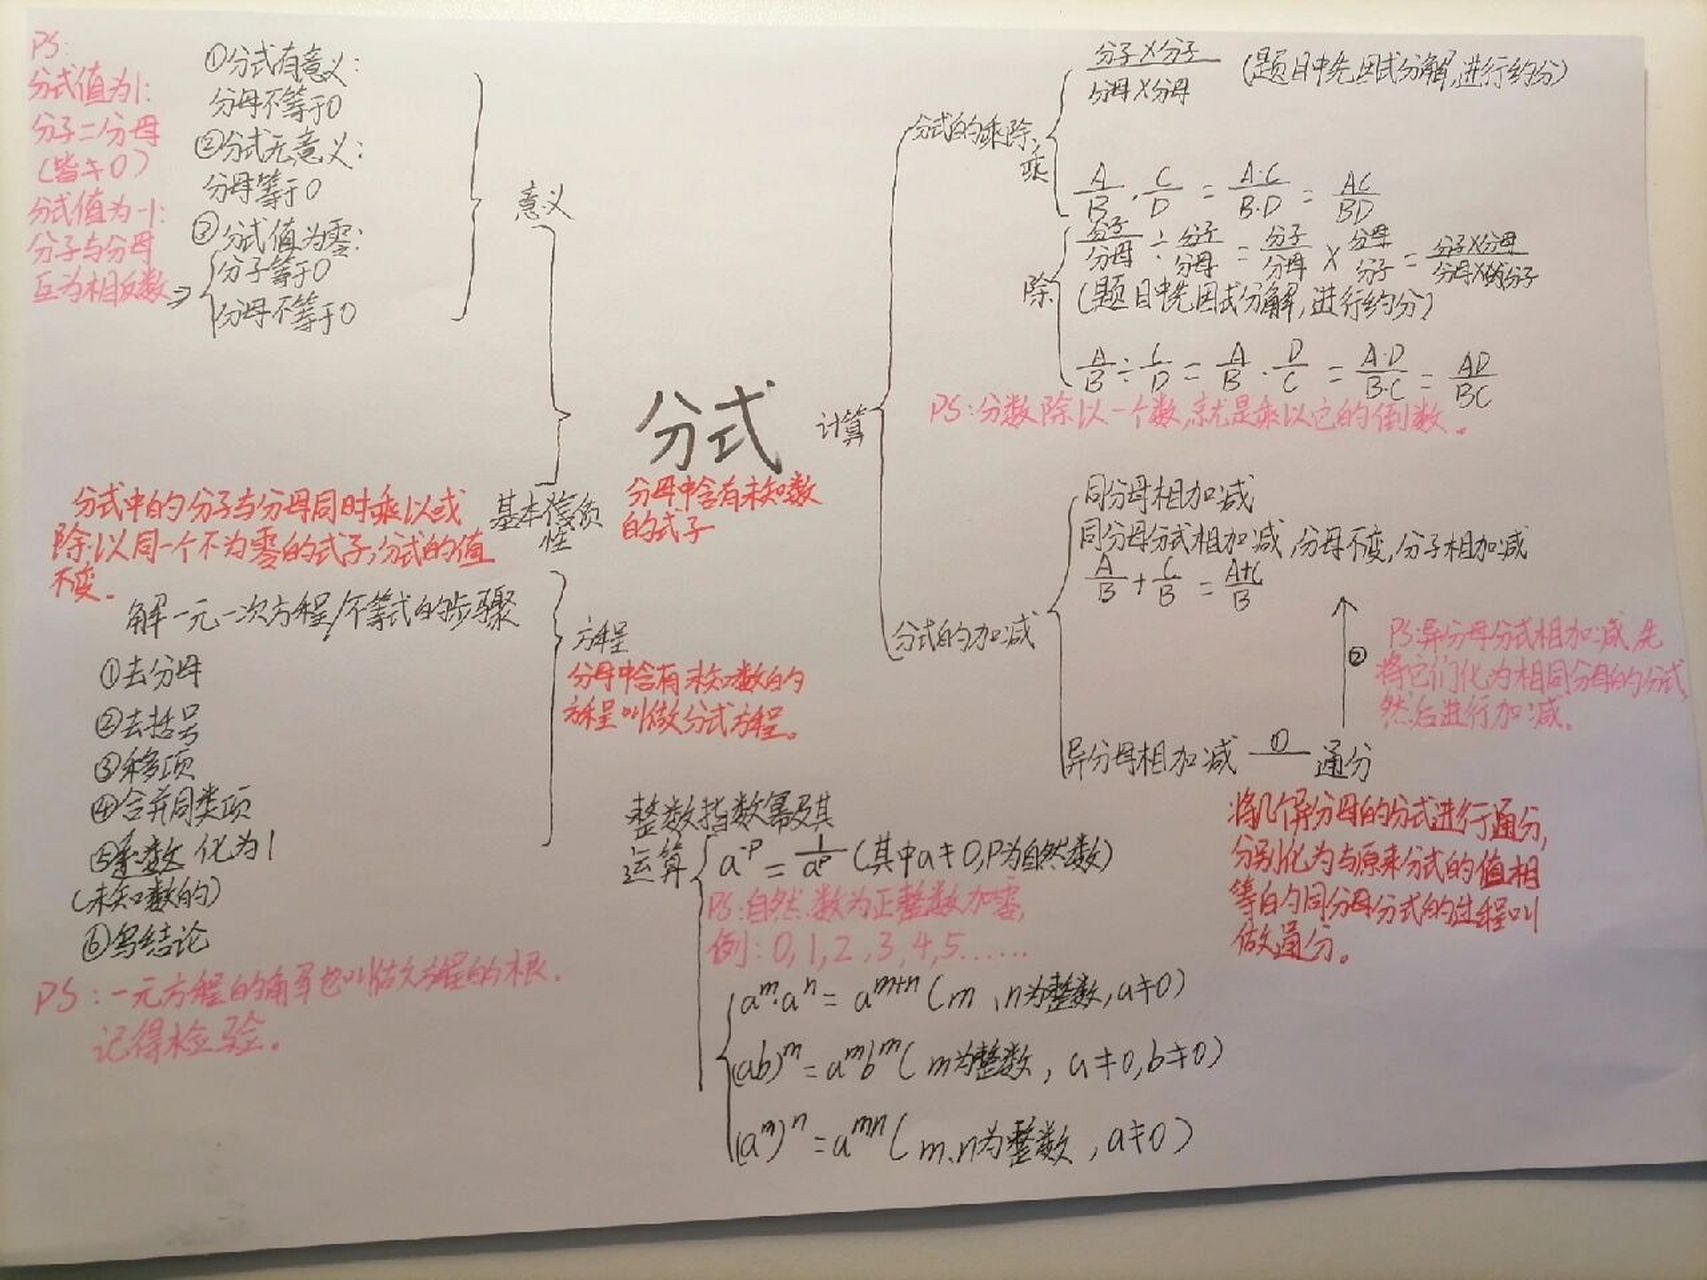 PS:
分式值为1:
分子=分母
(皆≠0)
分式值为-1:
分子与分母
互为相反数
①分式有意义:
分母不等于0
②分式无意义:
分母等于0
③分式值为零:
⇒
分子等于0
分母不等于0
意义
分式
分母中含有未知数
的式子
基本
性
分式中的分子与分母同时乘以或
除以同一个不为零的式子,分式的值
不变。
解一元一次方程/不等式的步骤
①去分母
②去括号
③移项
④合并同类项
⑤系数化为1
(未知数的)
⑥写结论
PS:一元方程的解也叫做方程的根.
记得检验。
方程
分母中含有未知数的
方程叫做分式方程。
计算
分式的乘除
乘
分子×分子
分母×分母
(题目中先因式分解,进行约分)
A/B · C/D = A·C/B·D = AC/BD
除
分子/分母 ÷ 分子/分母 = 分子/分母 × 分母/分子 = 分子×分母/分母×分子
(题目中先因式分解,进行约分)
A/B ÷ C/D = A/B · D/C = A·D/B·C = AD/BC
PS:分数除以一个数,就是乘以它的倒数。
分式的加减
同分母相加减
同分母分式相加减,分母不变,分子相加减
A/B + C/B = A+C/B
②
PS:异分母分式相加减,先
将它们化为相同分母的分式,
然后进行加减。
异分母相加减 ① 通分
将几个异分母的分式进行通分,
分别化为与原来分式的值相
等的同分母分式的过程叫
做通分。
整数指数幂及其
运算
a⁻ᵖ = 1/aᵖ (其中a≠0,P为自然数)
PS:自然数为正整数加零,
例:0,1,2,3,4,5......
aᵐ·aⁿ = aᵐ⁺ⁿ (m、n为整数,a≠0)
(ab)ᵐ = aᵐbᵐ (m为整数,a≠0,b≠0)
(aᵐ)ⁿ = aᵐⁿ (m、n为整数,a≠0)